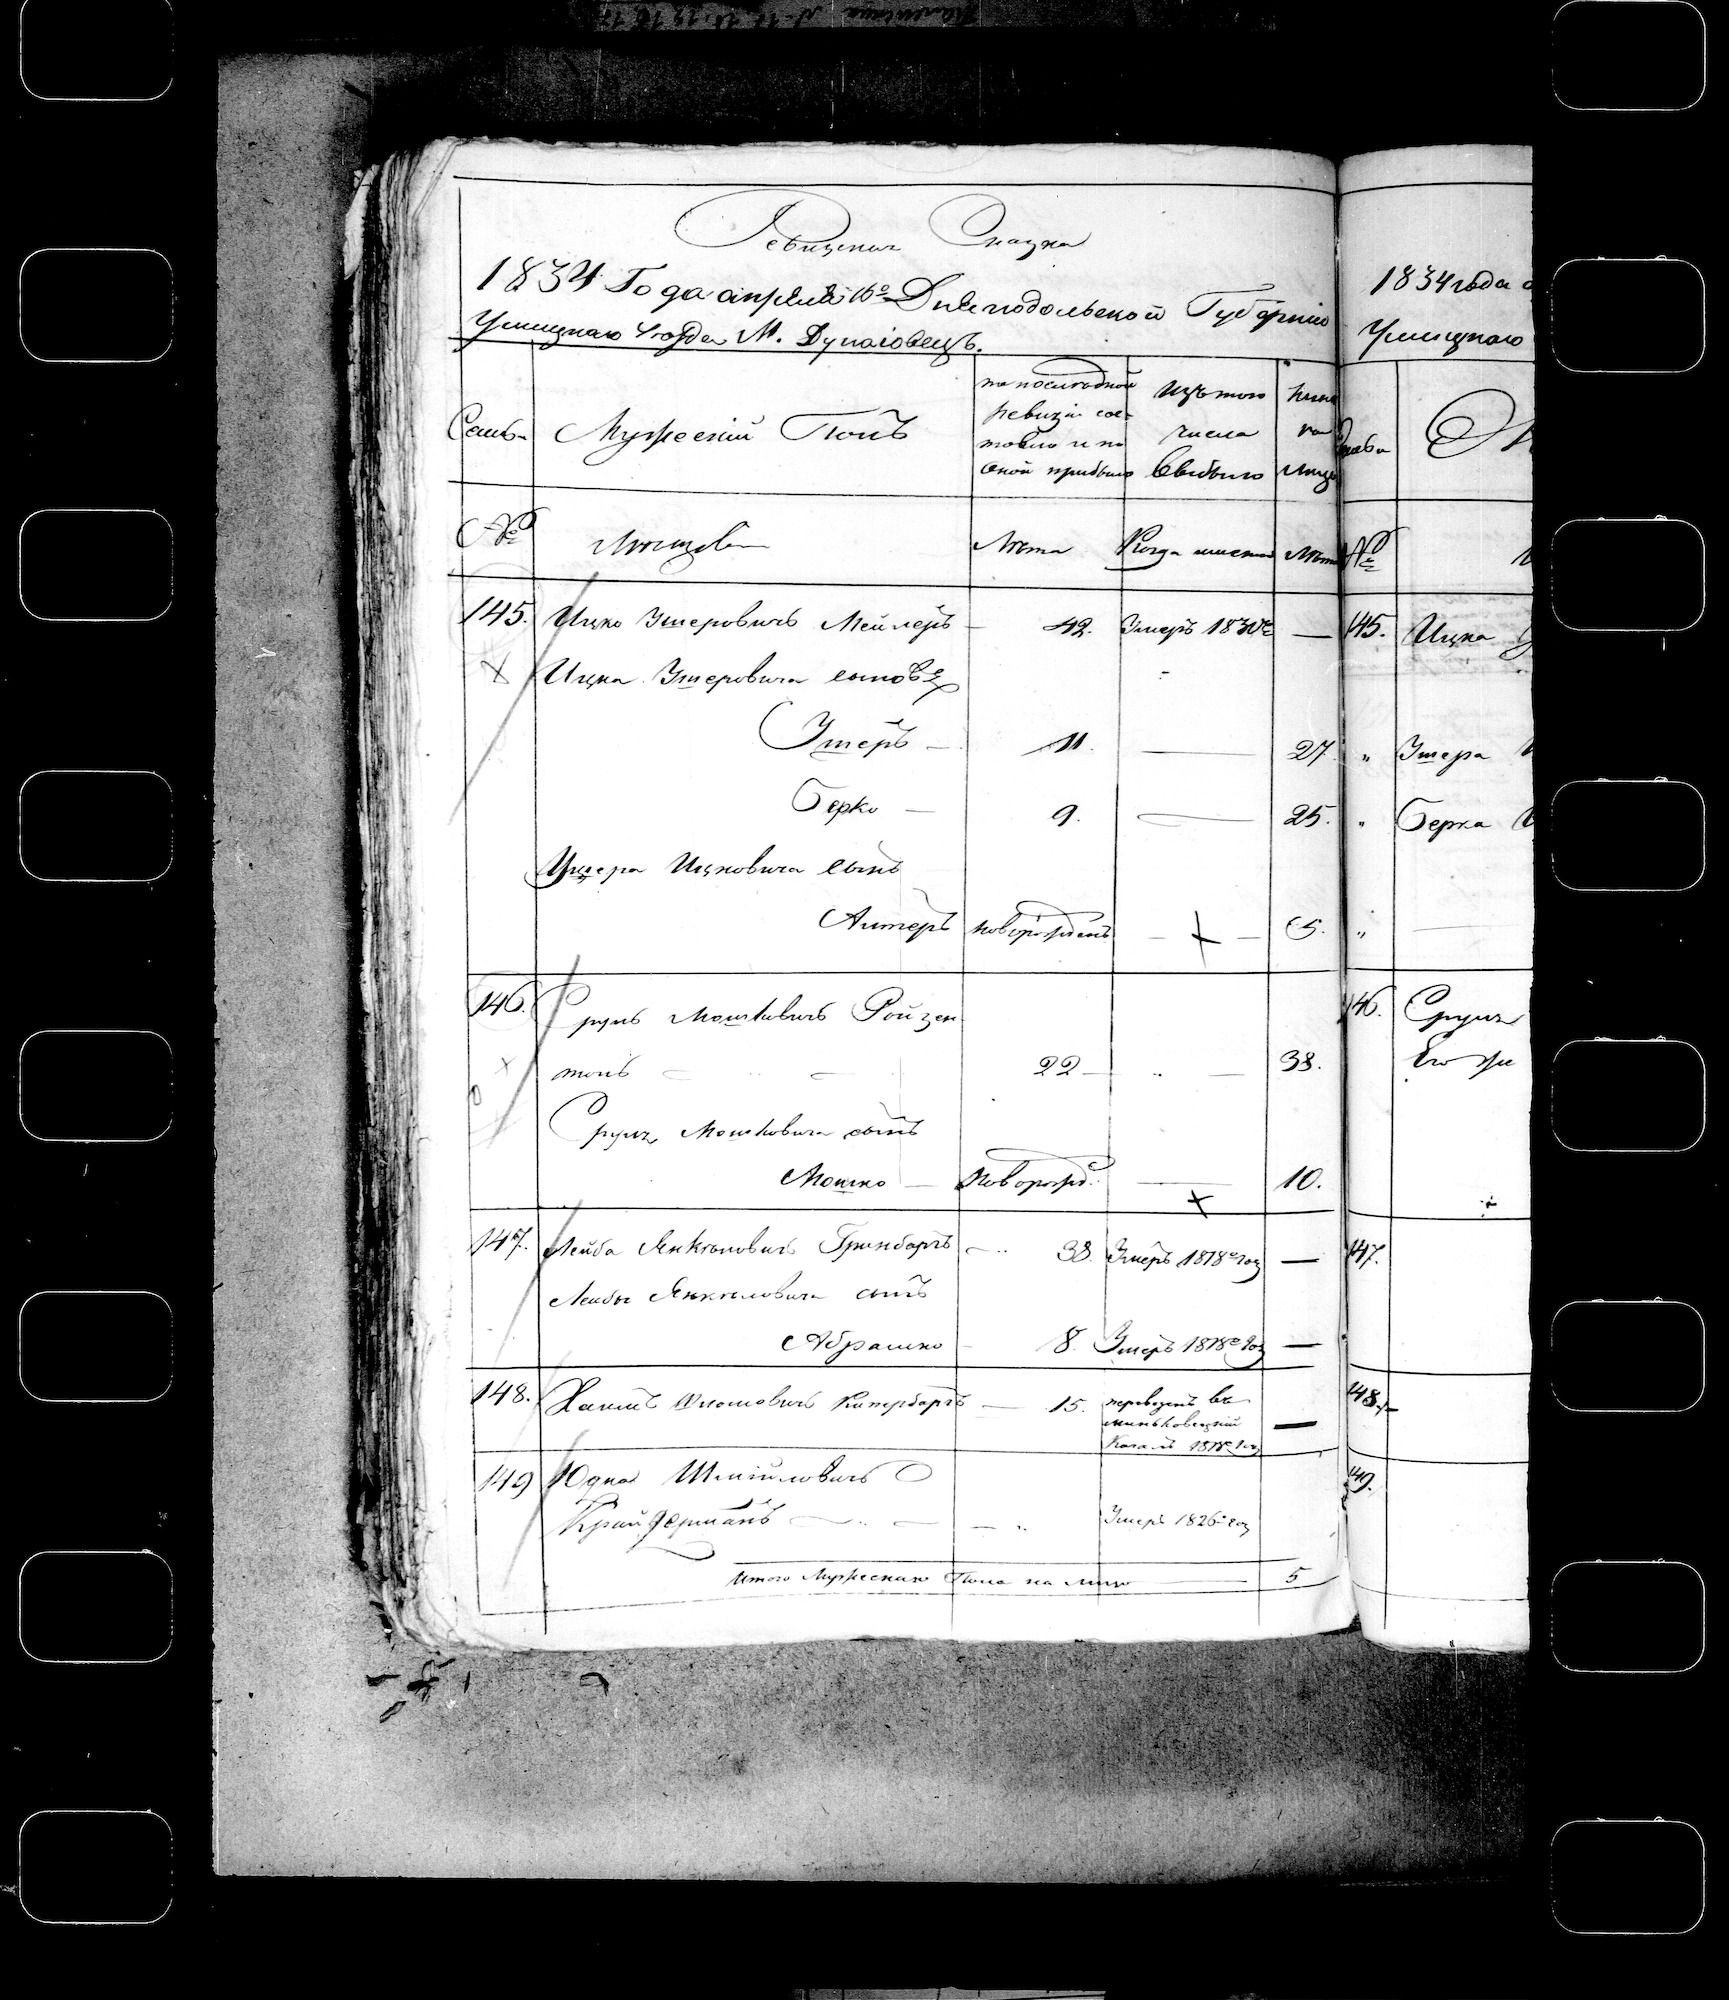 Ревизская Сказка
1834 Года апреля 16º Дня подольской Губернии
Ушицкаго Уезда М. Дунаювецъ.
Семьи
Мужеский Полъ
по последней ревизии состояло и после оной прибыло
Изъ того числа выбыло
ныне на лицо
№
Мещане
Лета
Когда именно
Лета
145. Ицко Ушеровичъ Мейлеръ — 42. Умеръ 1830го —
Ицка Ушеровича сыновья
Ушеръ — 11. — 27.
Берко — 9. — 25.
Ушера Ицковича сынъ
Алтеръ новорожденъ — 5.
146. Сруль Мошковичъ Ройзен
толь 22 — 38.
Сруля Мошковича сынъ
Мошко — новорожд. — 10.
147. Лейба Янкелевичъ Гринбаргъ — 38. Умеръ 1818го года —
Лейбы Янкелевича сынъ
Абрашко 8. Умеръ 1818го года —
148. Хаимъ Кипербаргъ — 15. переведенъ въ
миньковецкий —
Кагалъ 1818го года
149 Юдка Шмийловичъ
Крайзерманъ — Умеръ 1826го года
Итого Мужескаго Пола на лицо — 5
1834 года
Ушицкаго
№
145. Ицка
" Ушера
" Берка
"
146. Сруля
Его же
147.
148.
149.